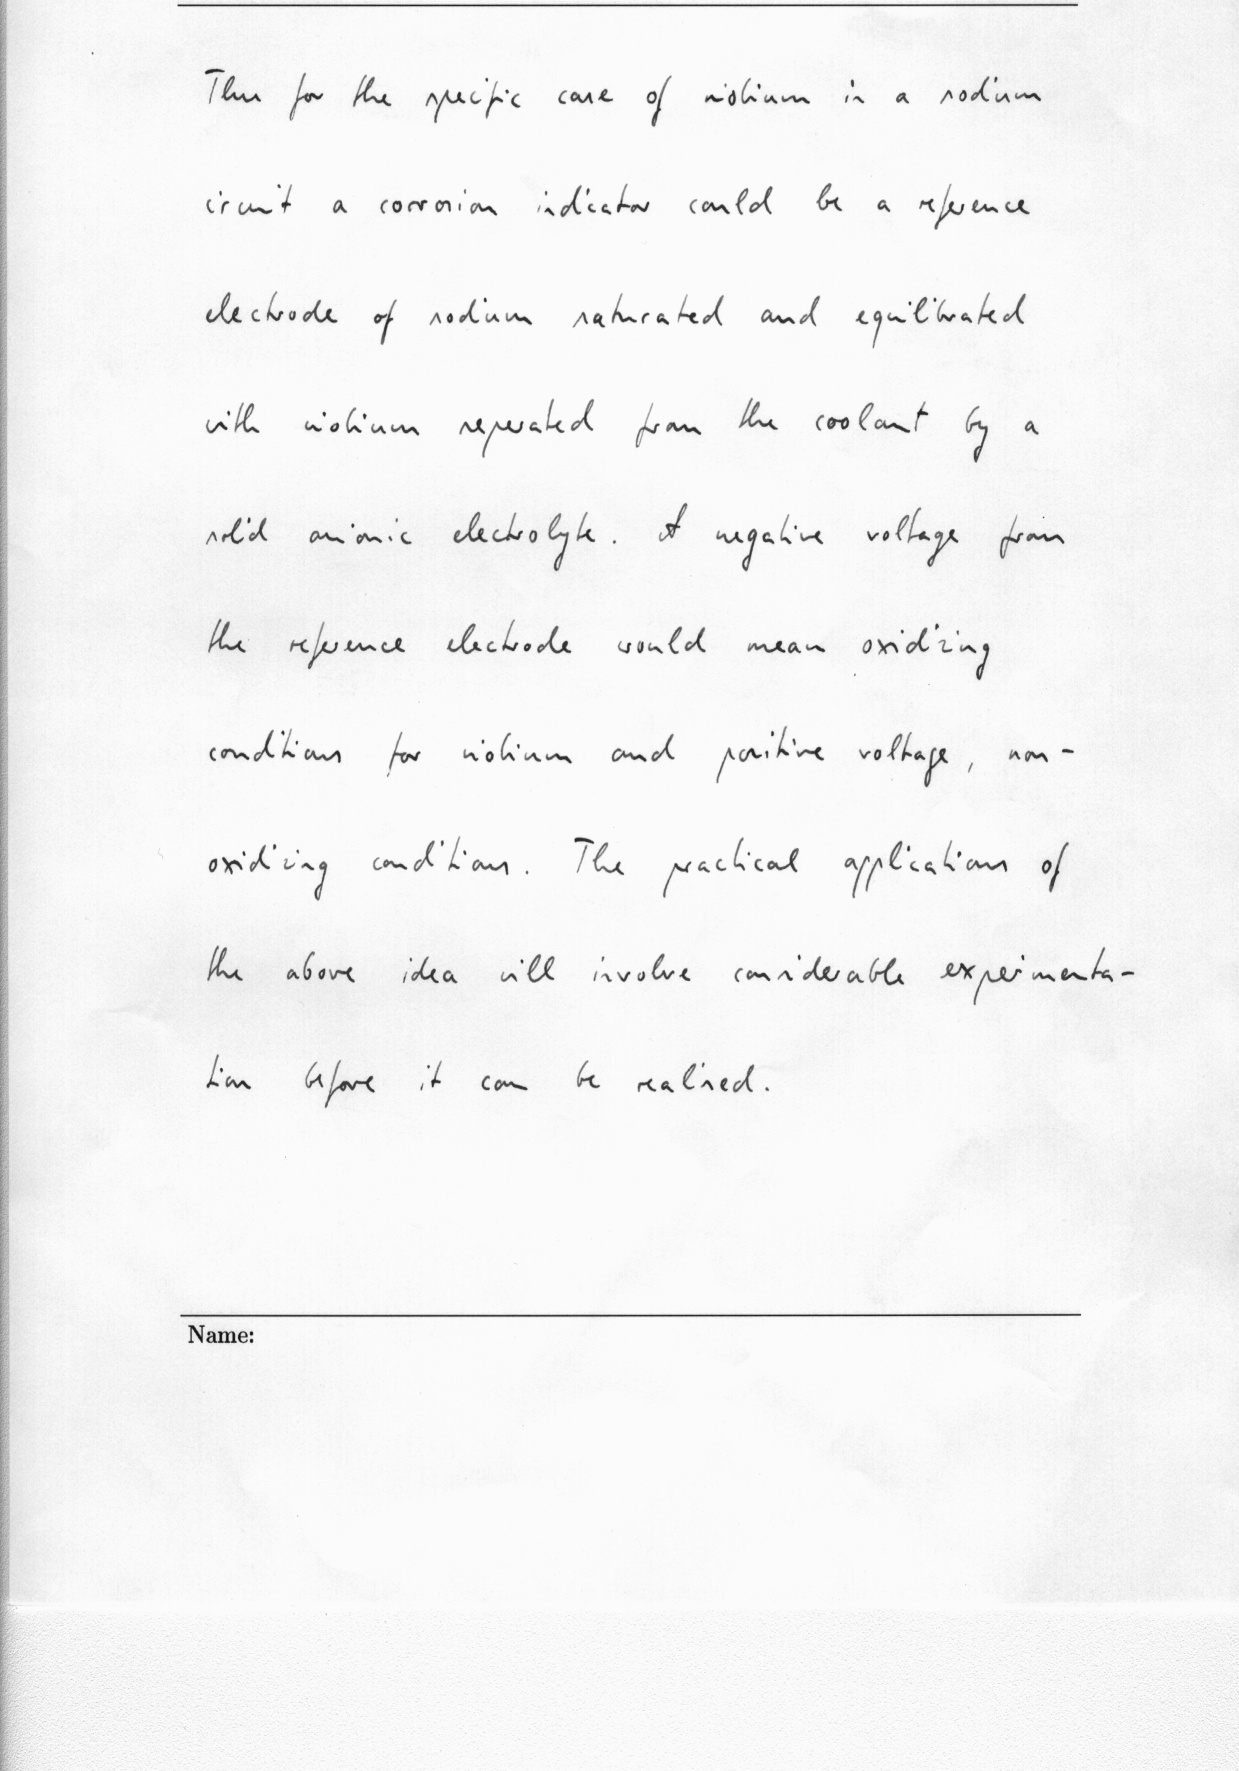 Thus for the specific case of niobium in a sodium
circuit a corrosion indicator could be a reference
electrode of sodium saturated and equilibrated
with niobium seperated from the coolant by a
solid anionic electrolyte. A negative voltage from
the reference electrode would mean oxidizing
conditions for niobium and positive voltage, non-
oxidizing conditions. The practical applications of
the above idea will involve considerable experimenta-
tion before it can be realised.
Name: